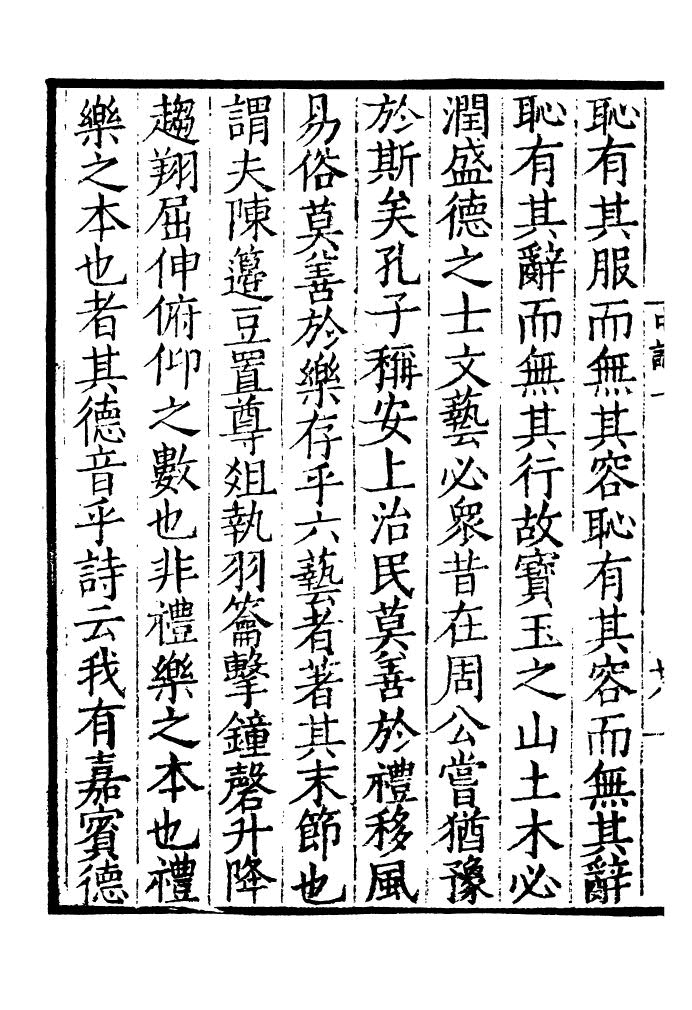 恥有其服而無其容恥有其容而無其辭
恥有其辭而無其行故寶玉之山土木必
潤盛德之士文藝必衆昔在周公嘗猶豫
於斯矣孔子稱安上治民莫善於禮移風
易俗莫善於樂存乎六藝者著其末節也
謂夫陳籩豆置尊俎執羽籥擊鐘磬升降
趨翔屈伸俯仰之數也非禮樂之本也禮
樂之本也者其德音乎詩云我有嘉賓德